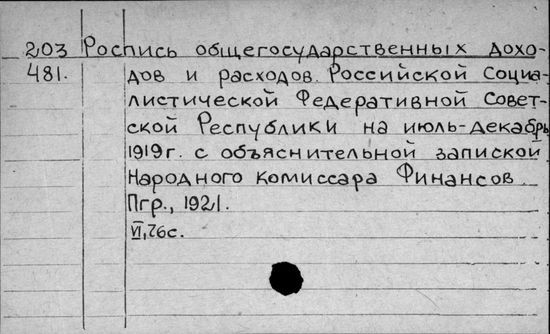 203 Роспись общегосударственных дохо-
481. дов и расходов Российской Социа-
листической Федеративной Совет-
ской Республики на июль-декабрь
1919г. с объяснительной запиской
Народного Комиссара Финансов.
Пгр., 1921.
VI, 76с.